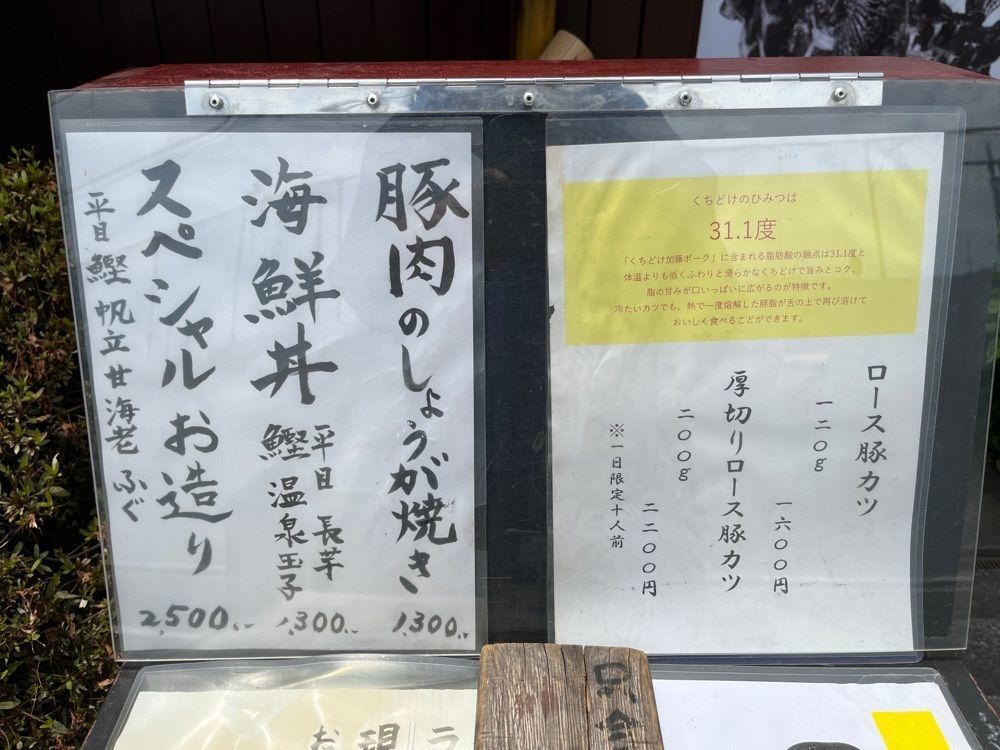 豚肉のしょうが焼き
1,300.-
海鮮丼
平目 長芋
鰹 温泉玉子
1,300.-
スペシャルお造り
平目 鰹 帆立 甘海老 ふぐ
2,500.-
くちどけのひみつは
31.1度
「くちどけ加藤ポーク」に含まれる脂肪酸の融点は31.1度と
体温よりも低くふわりと滑らかなくちどけで旨みとコク、
脂の甘みが口いっぱいに広がるのが特徴です。
冷たいカツでも、熱で一度溶解した豚脂が舌の上で再び溶けて
おいしく食べるこどができます。
ロース豚カツ
一二〇g
一六〇〇円
厚切りロース豚カツ
二〇〇g
二二〇〇円
※一日限定十人前